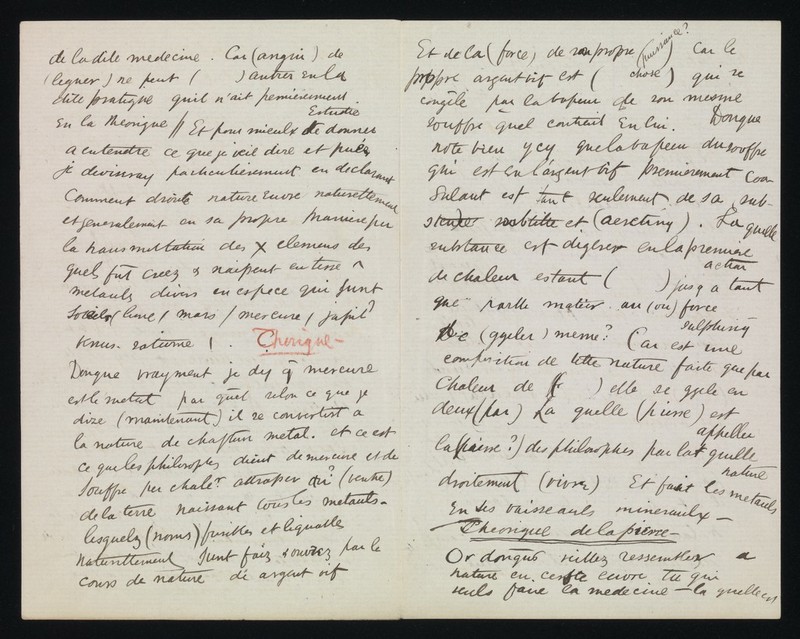 de la dite medecine. Car (angin) de
(lequer) ne peut (      ) autres en la
dite pratique quil n'ait premierement
Estudié
En la Theorique // Et pour mieulx te donner
a entendre ce que je veil dire et puis
je devinray particulierement en declarant
Comment droite nature Euvre naturellement
et generalement en sa propre maniere per
la transmutation des X elemens des
quels fut creez & naissent en terre ^
metaulx divers en espece qui sunt
Soleil (lune / mars / mercure / jupit?
venus. saturne / . Theorique –
Donque vrayment je dy q̄ mercure
est le metal par quel selon ce que je
dize (maintenant) il se convertist a
la nature de chascun metal. et ce est
ce que les philosophes dient de mercure et de
souffre per chalr attraper du? (ventre)
de la terre naissant tous les metauls –
lesquelz (noms) fusibles et liquables
naturellement Sunt faiz souvez par le
cours de nature de argent vif
Et de la (force) de son propre (puissance?) Car le
propre argent vif est (      chose) qui se
congele par la vapeur de son mesme
souffre quel contient En lui. Donque
note bien ycy que la vapeur du souffre
qui est en l'argent vif premierement coa
gulant est tant seulement de sa sub-
stance subtille et (            ). La quelle
substance est digeree en la premiere
action
de chaleur estant (      ) jusq a tant
que parlle matier au (ou) force
sulphuriq
(      ) meme? Car est une
composition de tette nature faite que par
Chaleur de (      ) elle se gele en
deux (par) La quelle (pierre) est
appellee
la (pierre?) des philosophes par laquelle
nature
droitement (vivre) Et fait les metauls
En Ses vaisseauls mineraulx –
Theorique de la pierre –
Or donques veillez ressembler a
nature en ceste euvre tu qui
veuls faire la medecine – la quelle est